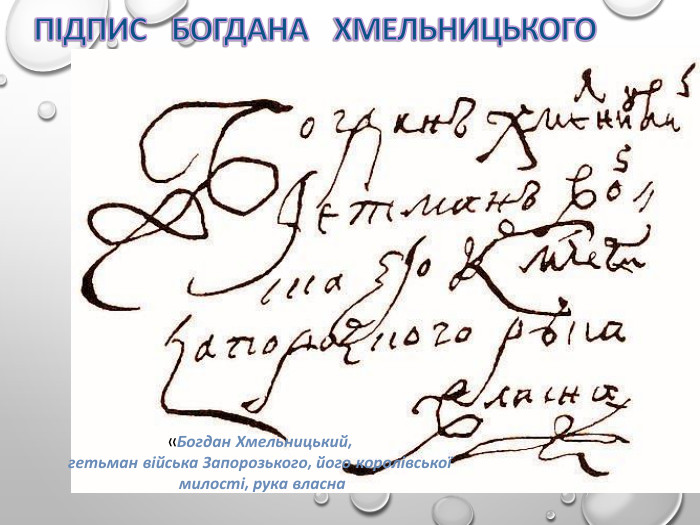 ПІДПИС БОГДАНА ХМЕЛЬНИЦЬКОГО
Богданъ
Гетманъ
Запорозкого рѣка
власна
«Богдан Хмельницький,
гетьман війська Запорозького, його королівської
милості, рука власна